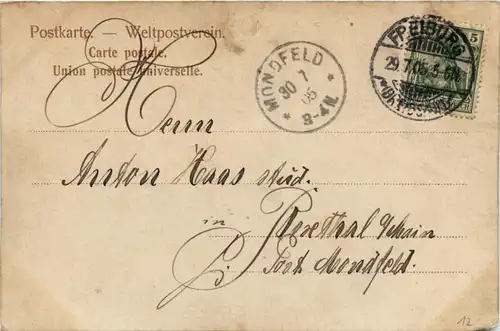 Postkarte. — Weltpostverein.
Carte postale.
Union postale universelle.
MONDFELD
30 7
05
8-4N.
FREIBURG
29.7.05. 5-6N
5
Herrn
Anton Haas stud.
in
Post Mondfeld.
12